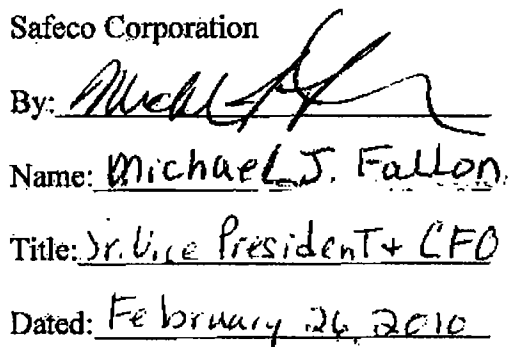 Safeco Corporation
By:
Name: Michael J. Fallon
Title: Sr. Vice President + CFO
Dated: February 26, 2010